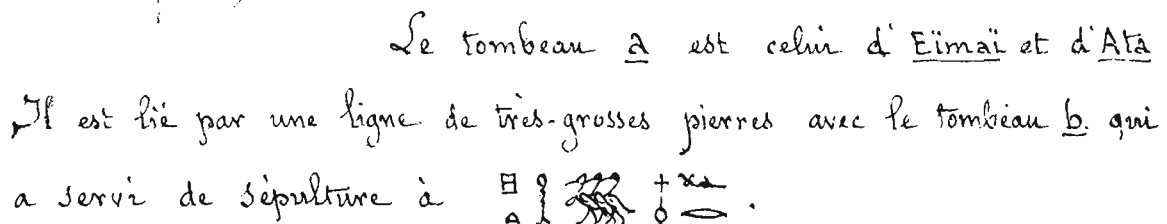 Le tombeau a est celui d'Eïmaï et d'Ata
Il est lié par une ligne de très-grosses pierres avec le tombeau b. qui
a servi de sépulture à